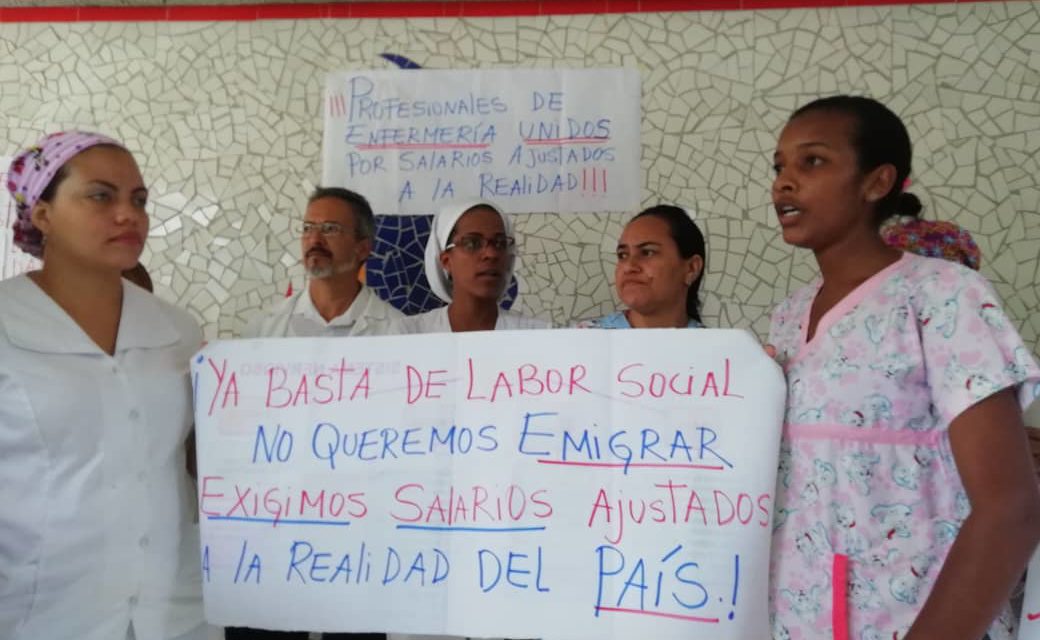 ¡¡¡PROFESIONALES DE
ENFERMERÍA UNIDOS
POR SALARIOS AJUSTADOS
A LA REALIDAD!!!
¡YA BASTA DE LABOR SOCIAL
NO QUEREMOS EMIGRAR
EXIGIMOS SALARIOS AJUSTADOS
A LA REALIDAD DEL PAÍS.!